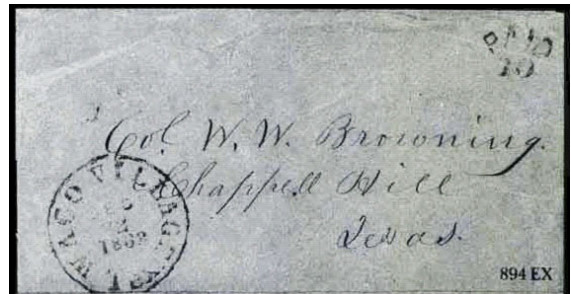 PAID
10
Col. W. W. Browning.
Chappell Hill
Texas.
WACO VILLAGE
894 EX